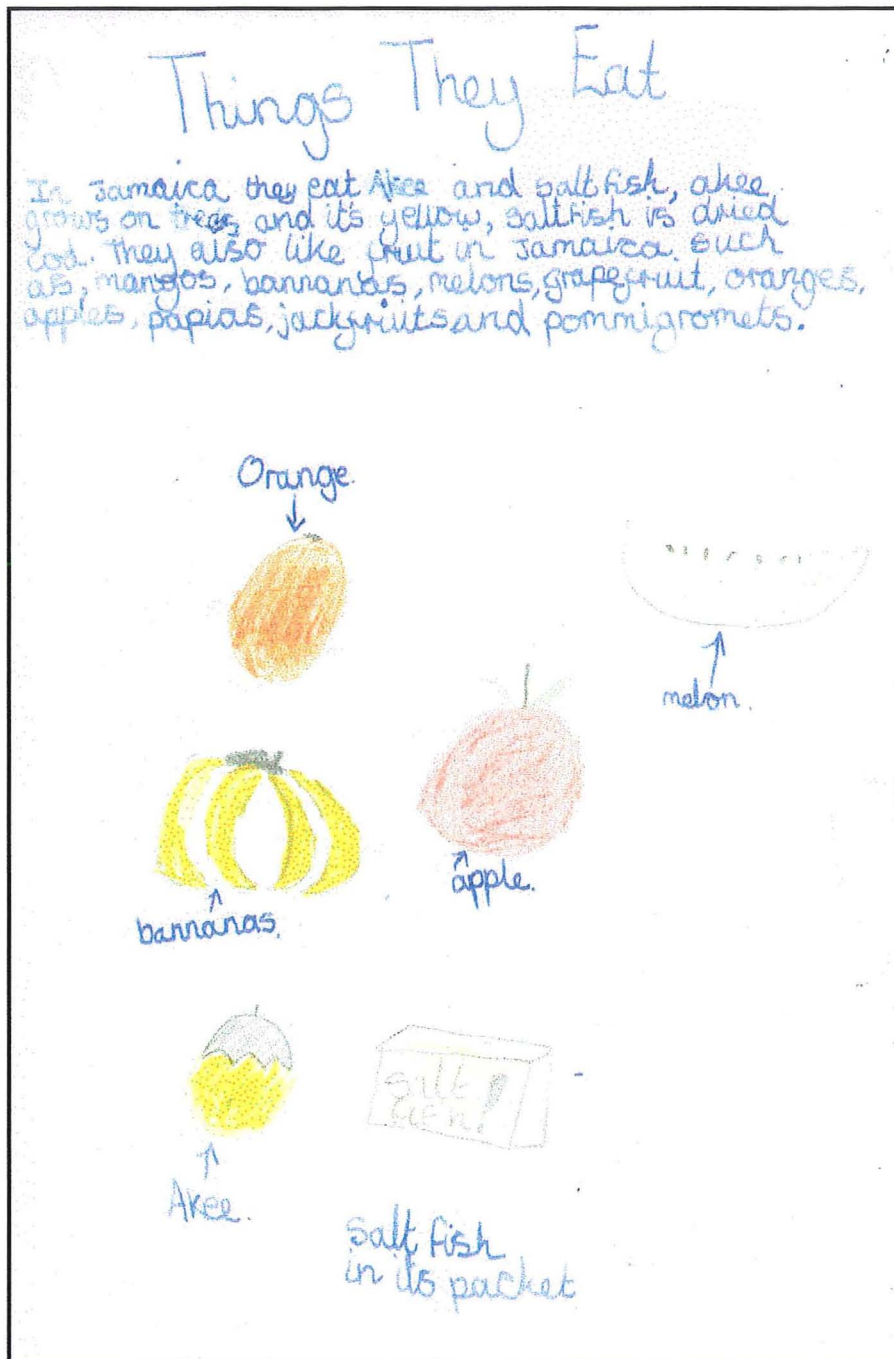 Things They Eat
In Jamaica they eat Akee and saltfish, akee
grows on trees and it's yellow, saltfish is dried
cod. They also like fruit in Jamaica. such
as, mangos, bannanas, melons, grapefruit, oranges,
apples, papias, jackfriuts and pommigromets.
Orange.
melon.
apple.
bannanas.
salt
fish!
Akee.
Salt fish
in its packet